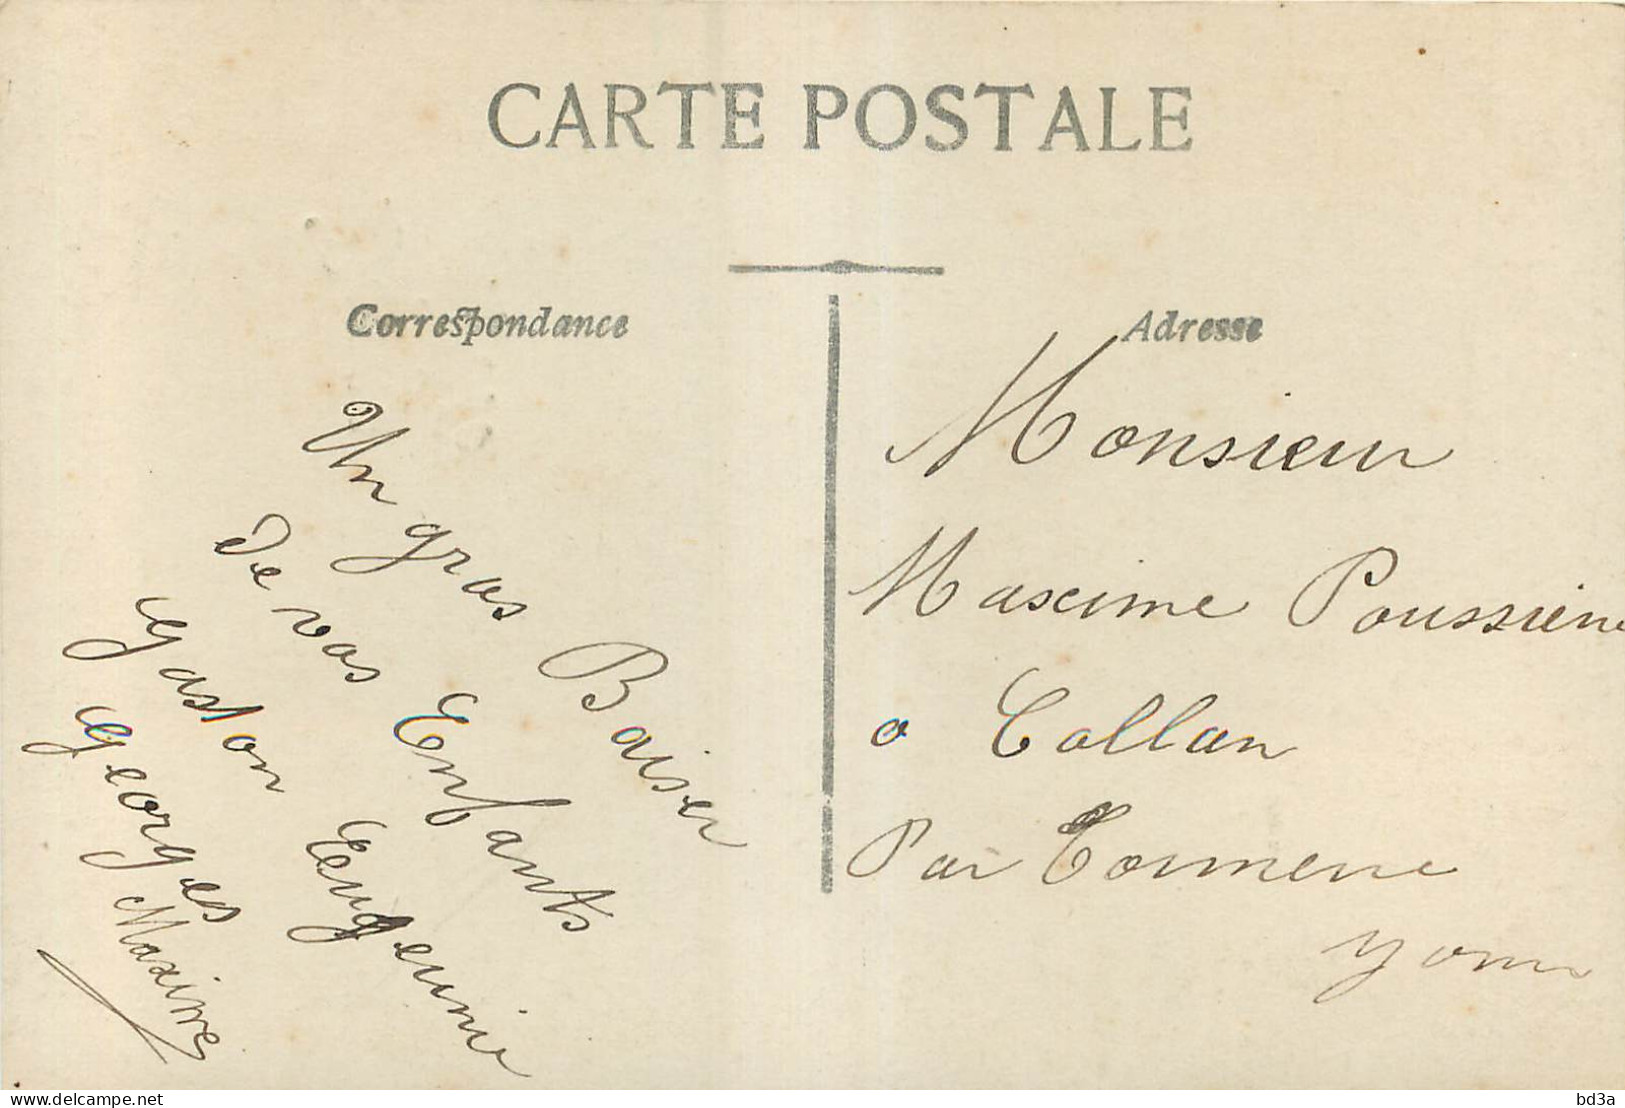 CARTE POSTALE
Correspondance
Un gros Baiser
De vos Enfants
Gaston Eugenie
Georges
Maxime
Adresse
Monsieur
Maxime Poussiene
a Collan
Par Tonnerre
Yonne
delcampe.net
bd3a